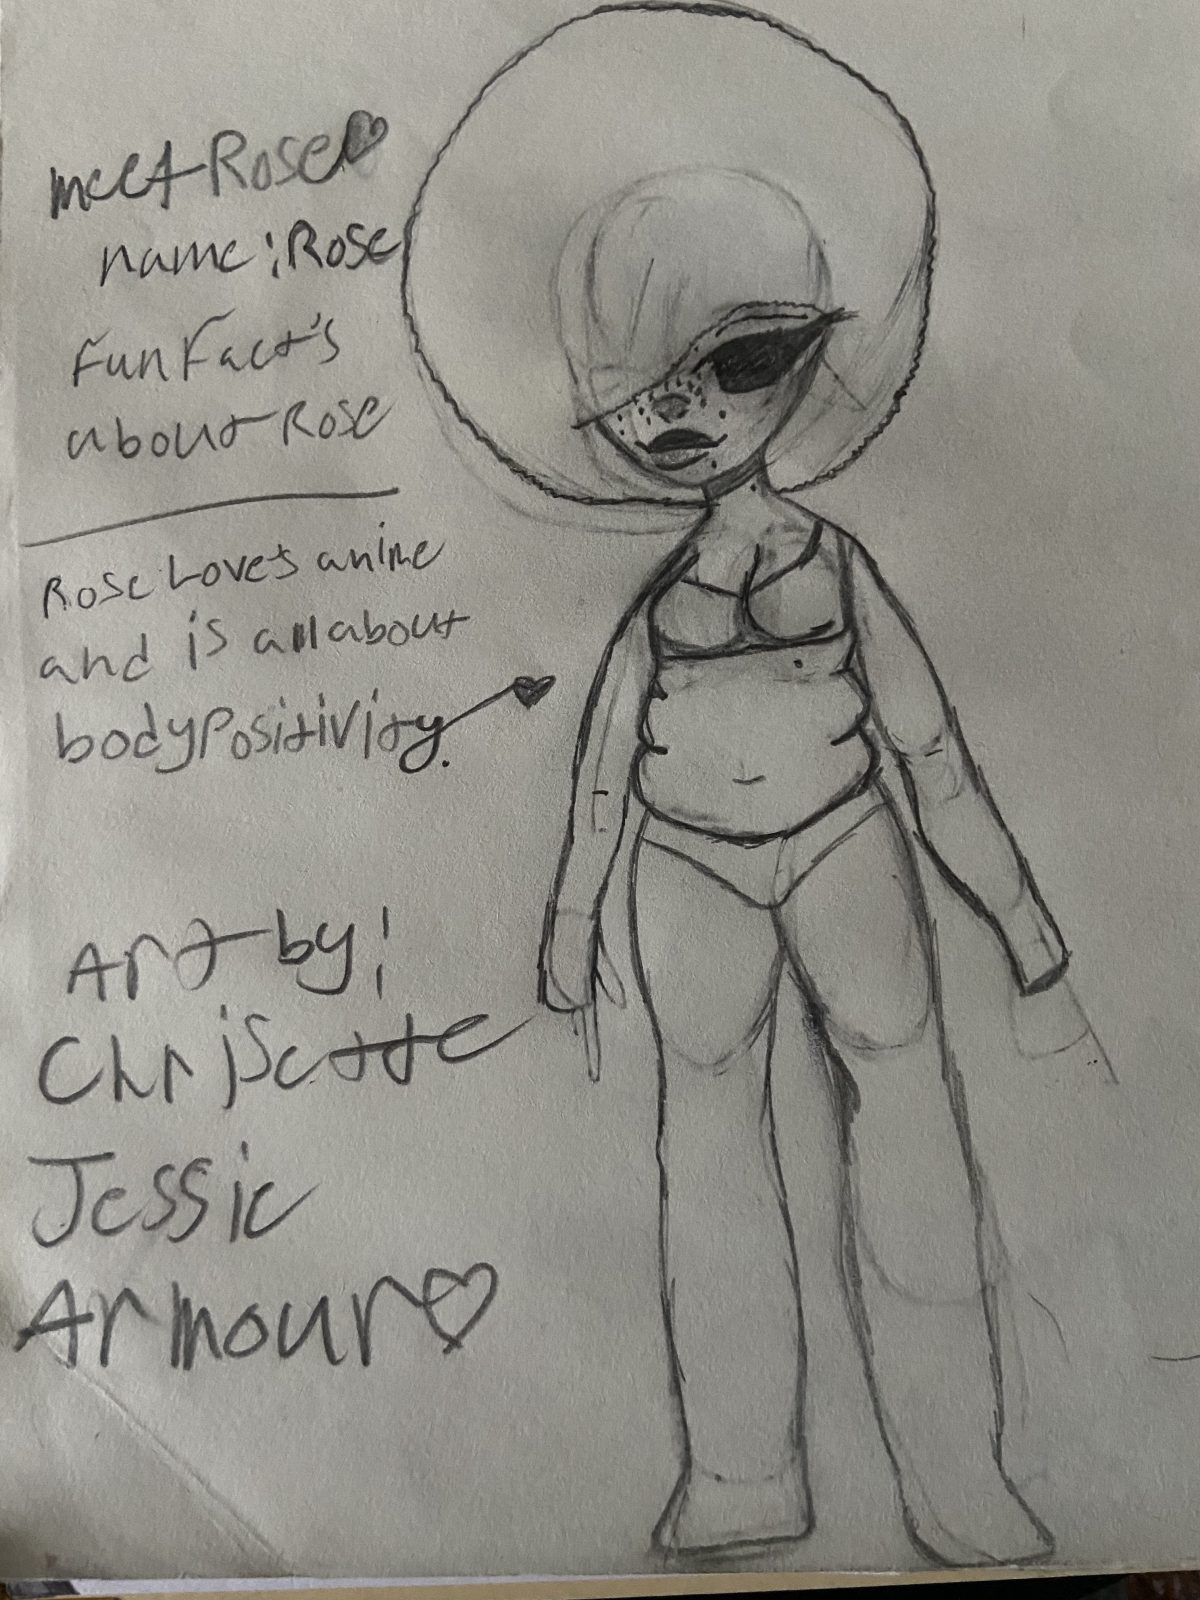 meet Rose
name: Rose
Fun Fact's
about Rose
Rose Love's anime
and is all about
body Positivity.
Art by:
Chrisette
Jessie
Armour